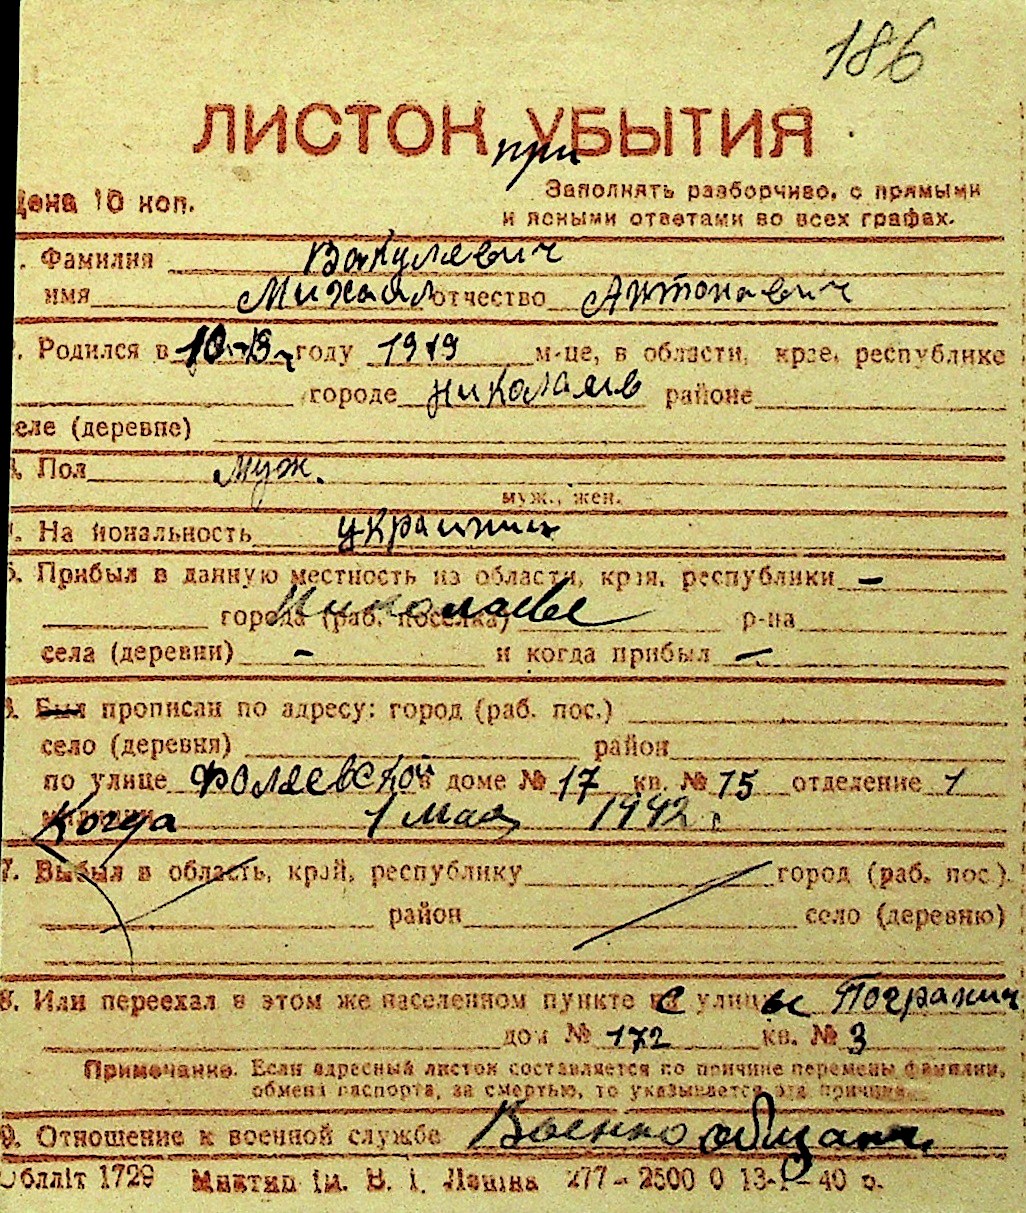 186
ЛИСТОК УБЫТИЯ
при
Цена 10 коп.
Заполнять разборчиво, с прямыми
и ясными ответами во всех графах.
1. Фамилия Вакулевич
имя Михаил отчество Антонович
2. Родился в году 1919 м-це, в области, крае, республике
городе Николаев районе
селе (деревне)
3. Пол Муж.
муж., жен.
4. Национальность украинец
5. Прибыл в данную местность из области, края, республики —
города (раб. поселка) Николаеве р-на
села (деревни) — и когда прибыл —
6. Был прописан по адресу: город (раб. пос.)
село (деревня) район
по улице Фалеевской в доме № 17 кв. № 15 отделение 1
милиции Когда 1 мая 1942 г.
7. Выбыл в область, край, республику город (раб. пос.)
район село (деревню)
8. Или переехал в этом же населенном пункте с улицы Погранич
дом № 172 кв. № 3
Примечание. Если адресный листок составляется по причине перемены фамилии,
обмена паспорта, за смертью, то указывается эта причина.
9. Отношение к военной службе Военнообязан.
Облліт 1729 Миктип ім. В. І. Леніна 277 – 2500 0 13-1-40 р.